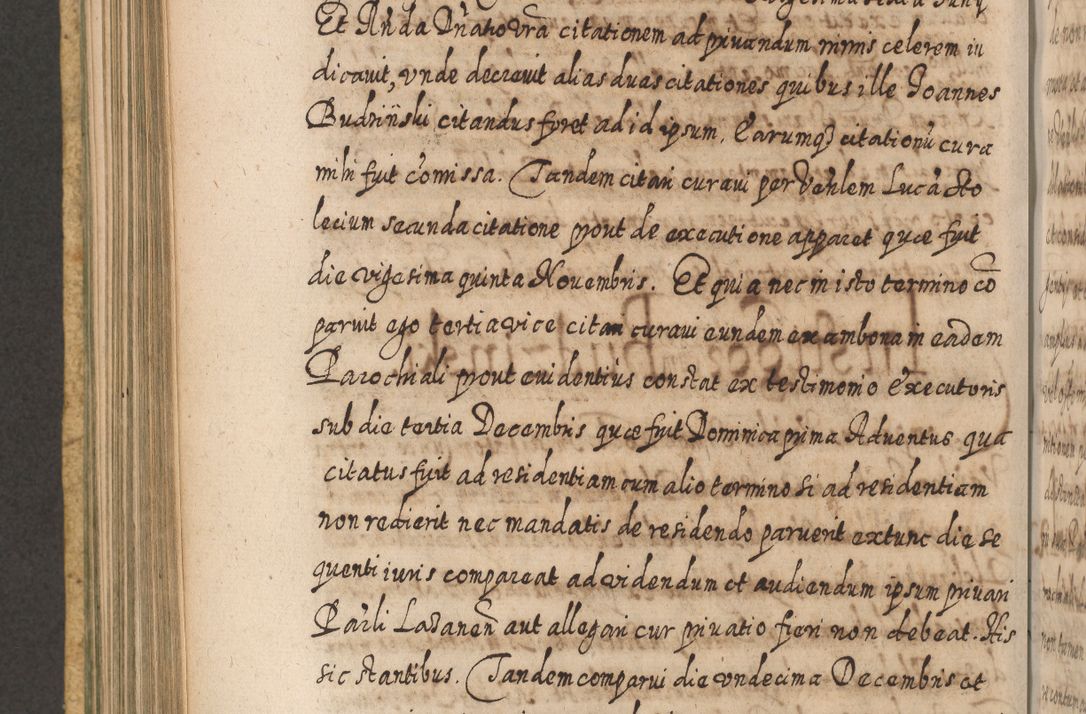 Et Rñda Dnatio vrã citationem ad priuandum nimis celerem iu
dicauit, vnde decreuit alias duas citationes quibus ille Joannes
Budziñski citandus foret ad id ipsum. Earumq citationũ cura
mihi fuit comissa. Tandem citari curaui per Venlem Lucã Sto
lecium secunda citatione prout de executione apparet quæ fuit
die vigesima quinta Nouembris. Et quia nec in isto termino cõ
paruit ego tertia vice citari curaui eundem ex ambona in eadem
Parochiali prout euidentius constat ex testimonio Executoris
sub die tertia Decembris quæ fuit Dominica prima Aduentus qua
citatus fuit ad residentiam cum alio termino si ad residentiam
non redierit nec mandatis de residendo paruerit extunc die se
quenti iuris compareat ad videndum et audiendum ipsum priuari
Parli Ladanen aut allegari cur priuatio fieri non debeat. His
sic stantibus. Tandem comparui die vndecima Decembris et